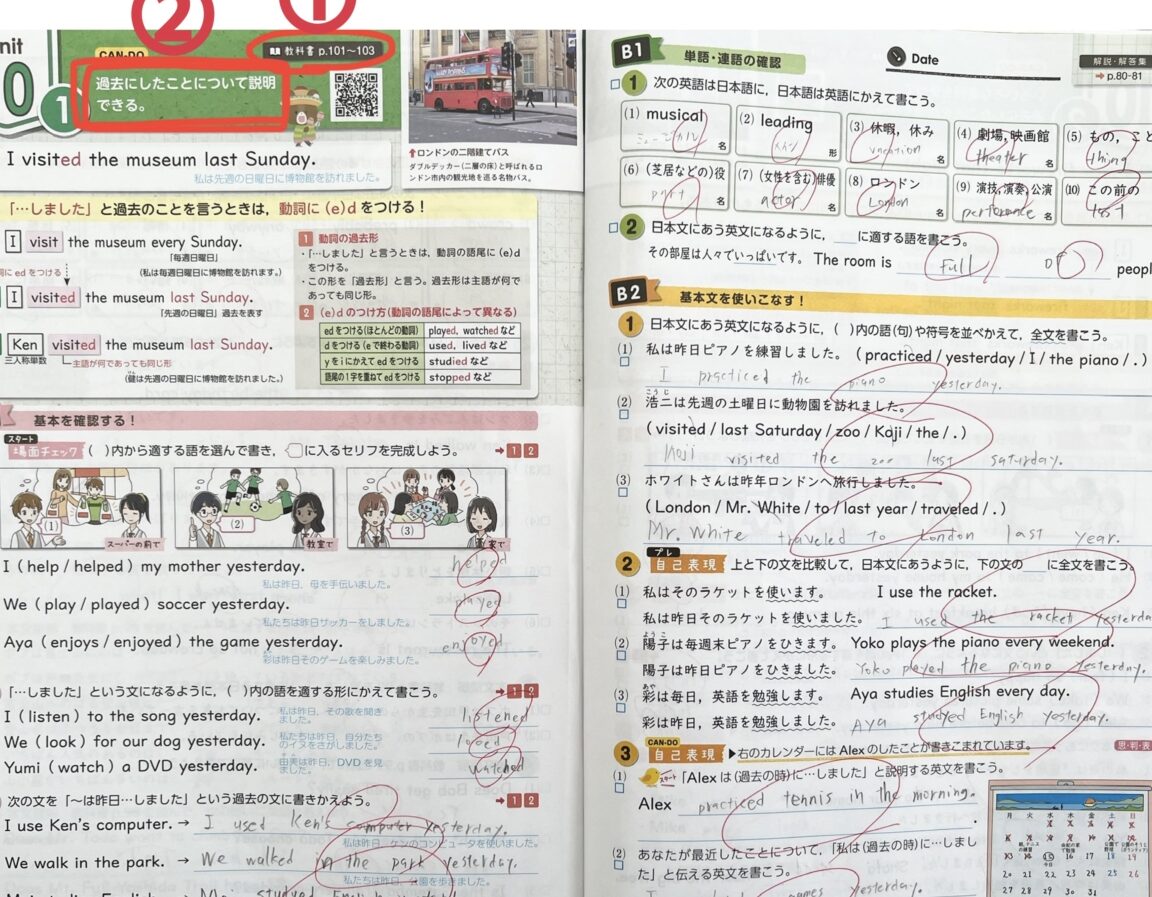 ② ①
nit
0 1
CAN-DO
教科書 p.101～103
過去にしたことについて説明
できる。
ロンドンの二階建てバス
ダブルデッカー(二層の床)と呼ばれるロ
ンドン市内の観光地を巡る名物バス。
I visited the museum last Sunday.
私は先週の日曜日に博物館を訪れました。
「…しました」と過去のことを言うときは，動詞に (e)d をつける！
I visit the museum every Sunday.
「毎週日曜日」
詞に ed をつける
(私は毎週日曜日に博物館を訪れます。)
I visited the museum last Sunday.
「先週の日曜日」過去を表す
Ken visited the museum last Sunday.
三人称単数 主語が何であっても同じ形
(健は先週の日曜日に博物館を訪れました。)
1 動詞の過去形
・「…しました」と言うときは，動詞の語尾に (e)d
をつける。
・この形を「過去形」と言う。過去形は主語が何で
あっても同じ形。
2 (e)d のつけ方(動詞の語尾によって異なる)
ed をつける(ほとんどの動詞) played, watched など
d をつける(e で終わる動詞) used, lived など
y を i にかえて ed をつける studied など
語尾の1字を重ねて ed をつける stopped など
基本を確認する！
スタート
場面チェック ( )内から適する語を選んで書き， に入るセリフを完成しよう。 → 1 2
(1) (2) (3)
スーパーの前で 教室で
I ( help / helped ) my mother yesterday. helped
私は昨日，母を手伝いました。
We ( play / played ) soccer yesterday. played
私たちは昨日サッカーをしました。
Aya ( enjoys / enjoyed ) the game yesterday. enjoyed
彩は昨日そのゲームを楽しみました。
「…しました」という文になるように，( )内の語を適する形にかえて書こう。 → 1 2
I (listen) to the song yesterday. 私は昨日，その歌を聞き
ました。 listened
We (look) for our dog yesterday. 私たちは昨日，自分たち
のイヌをさがしました。 looked
Yumi (watch) a DVD yesterday. 由美は昨日，DVD を見
ました。 watched
次の文を「～は昨日…しました」という過去の文に書きかえよう。 → 1 2
I use Ken's computer. → I used Ken's computer yesterday.
私は昨日，ケンのコンピュータを使いました。
We walk in the park. → We walked in the park yesterday.
私たちは昨日，公園を歩きました。
studyed English
B1 単語・連語の確認
Date
解説・解答集
p.80-81
1 次の英語は日本語に，日本語は英語にかえて書こう。
(1) musical ミュージカル 名
(2) leading 形
(3) 休暇，休み vacation 名
(4) 劇場，映画館 theater 名
(5) もの，こと thing
(6) (芝居などの)役 part 名
(7) (女性を含む)俳優 actor 名
(8) ロンドン London 名
(9) 演技，演奏，公演 名
(10) この前の last
2 日本文にあう英文になるように， に適する語を書こう。
その部屋は人々でいっぱいです。 The room is full of peopl
B2 基本文を使いこなす！
1 日本文にあう英文になるように，( )内の語(句)や符号を並べかえて，全文を書こう。
(1) 私は昨日ピアノを練習しました。 ( practiced / yesterday / I / the piano / . )
I practiced the piano yesterday.
(2) 浩二は先週の土曜日に動物園を訪れました。
こうじ
( visited / last Saturday / zoo / Koji / the / . )
Koji visited the zoo last saturday.
(3) ホワイトさんは昨年ロンドンへ旅行しました。
( London / Mr. White / to / last year / traveled / . )
Mr. White traveled to London last year.
2 プレ 自己表現 上と下の文を比較して，日本文にあうように，下の文の に全文を書こう。
(1) 私はそのラケットを使います。 I use the racket.
私は昨日そのラケットを使いました。 I used the racket yesterda
(2) 陽子は毎週末ピアノをひきます。 Yoko plays the piano every weekend.
ようこ
陽子は昨日ピアノをひきました。 Yoko played the piano yesterday.
(3) 彩は毎日，英語を勉強します。 Aya studies English every day.
あや
彩は昨日，英語を勉強しました。 Aya studyed English yesterday.
3 CAN-DO 自己表現 ▶右のカレンダーには Alex のしたことが書きこまれています。 思・判・表
(1) スタート 「Alex は(過去の時)に…しました」と説明する英文を書こう。
Alex practiced tennis in the morning.
(2) あなたが最近したことについて，「私は(過去の時)に…しまし
た」と伝える英文を書こう。
I games yesterday.
月 火 水 木 金 土 日
16 17 18 19
20 21 22 23 24 25 26
27 28 29 30 31